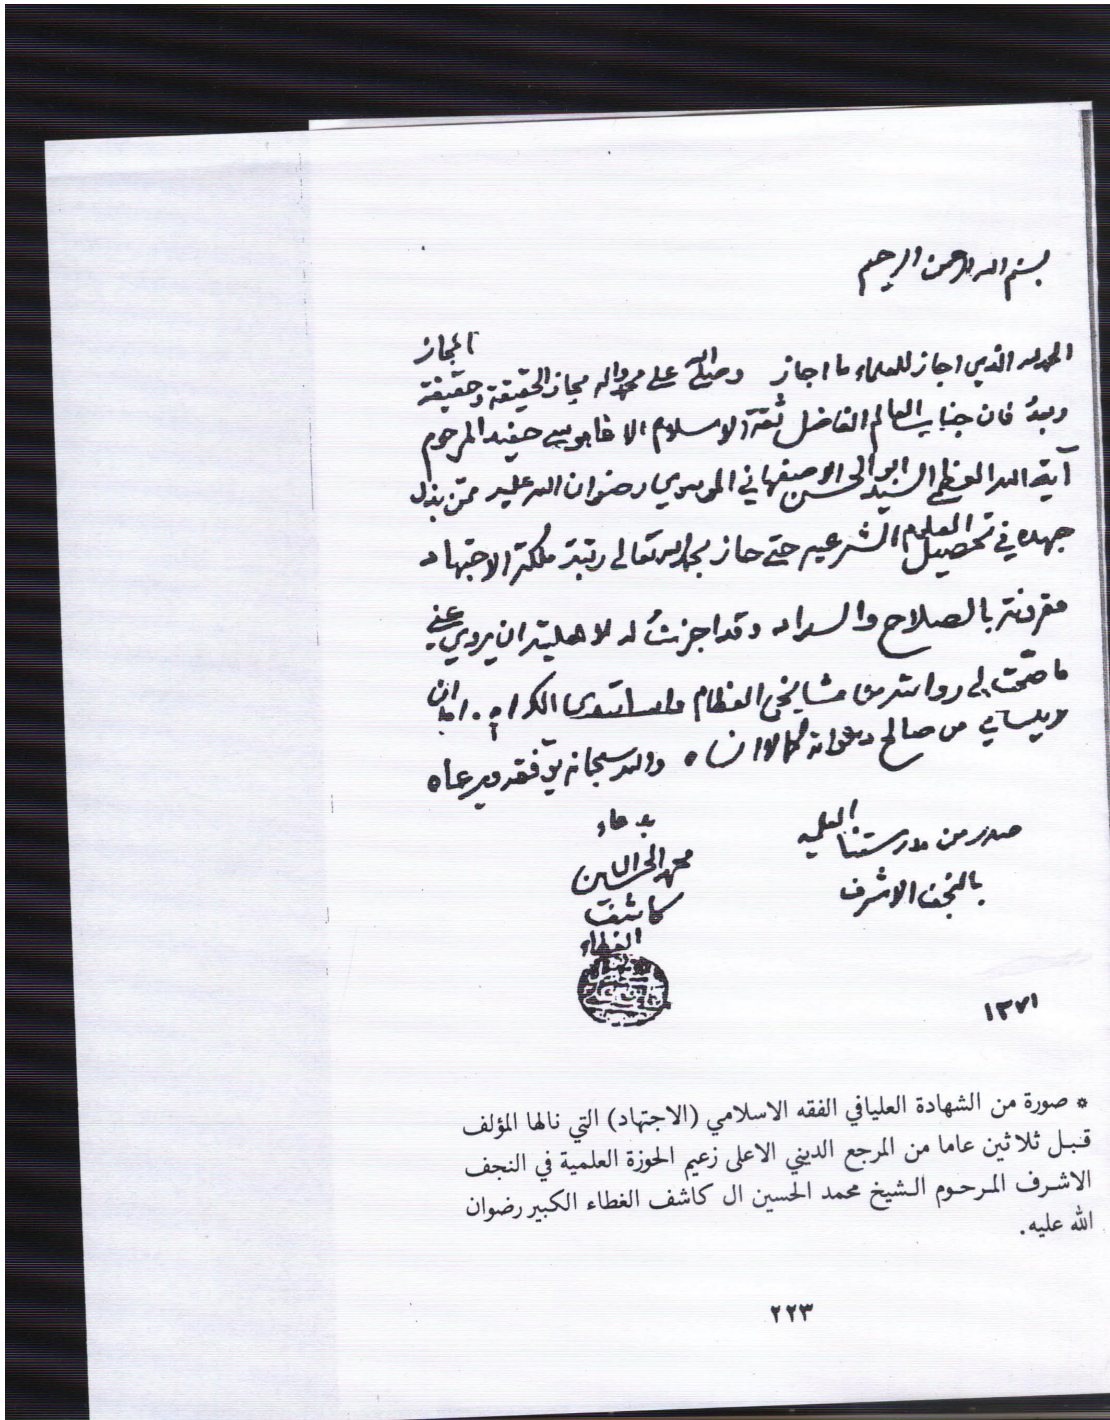 بسم الله الرحمن الرحيم
الحمد لله الذي اجاز للعلماء ما اجاز وصلى الله على محمد واله مجاز الحقيقة وحقيقة المجاز
وبعدُ فان جناب العالم الفاضل ثقة الاسلام الاغا موسى حفيد المرحوم
آية الله العظمى السيد ابو الحسن الاصفهاني الموسوي رضوان الله عليه ممّن بذل
جهده في تحصيل العلوم الشرعيه حتى حاز بحمد الله تعالى رتبة ملكة الاجتهاد
مقرونة بالصلاح والسداد وقد اجزتُ له لاهليته ان يروي عني
ما صحّت لي روايته من مشايخي العظام واساتيدي الكرام
لا ينساني من صالح دعواته كما لا انساه والله سبحانه يوفقه ويرعاه
صدر من مدرستنا العلميه
بالنجف الاشرف
محمد الحسين
كاشف
الغطاء
١٣٧١
* صورة من الشهادة العليا في الفقه الاسلامي (الاجتهاد) التي نالها المؤلف
قبل ثلاثين عاما من المرجع الديني الاعلى زعيم الحوزة العلمية في النجف
الاشرف المرحوم الشيخ محمد الحسين ال كاشف الغطاء الكبير رضوان
الله عليه.
٢٢٣